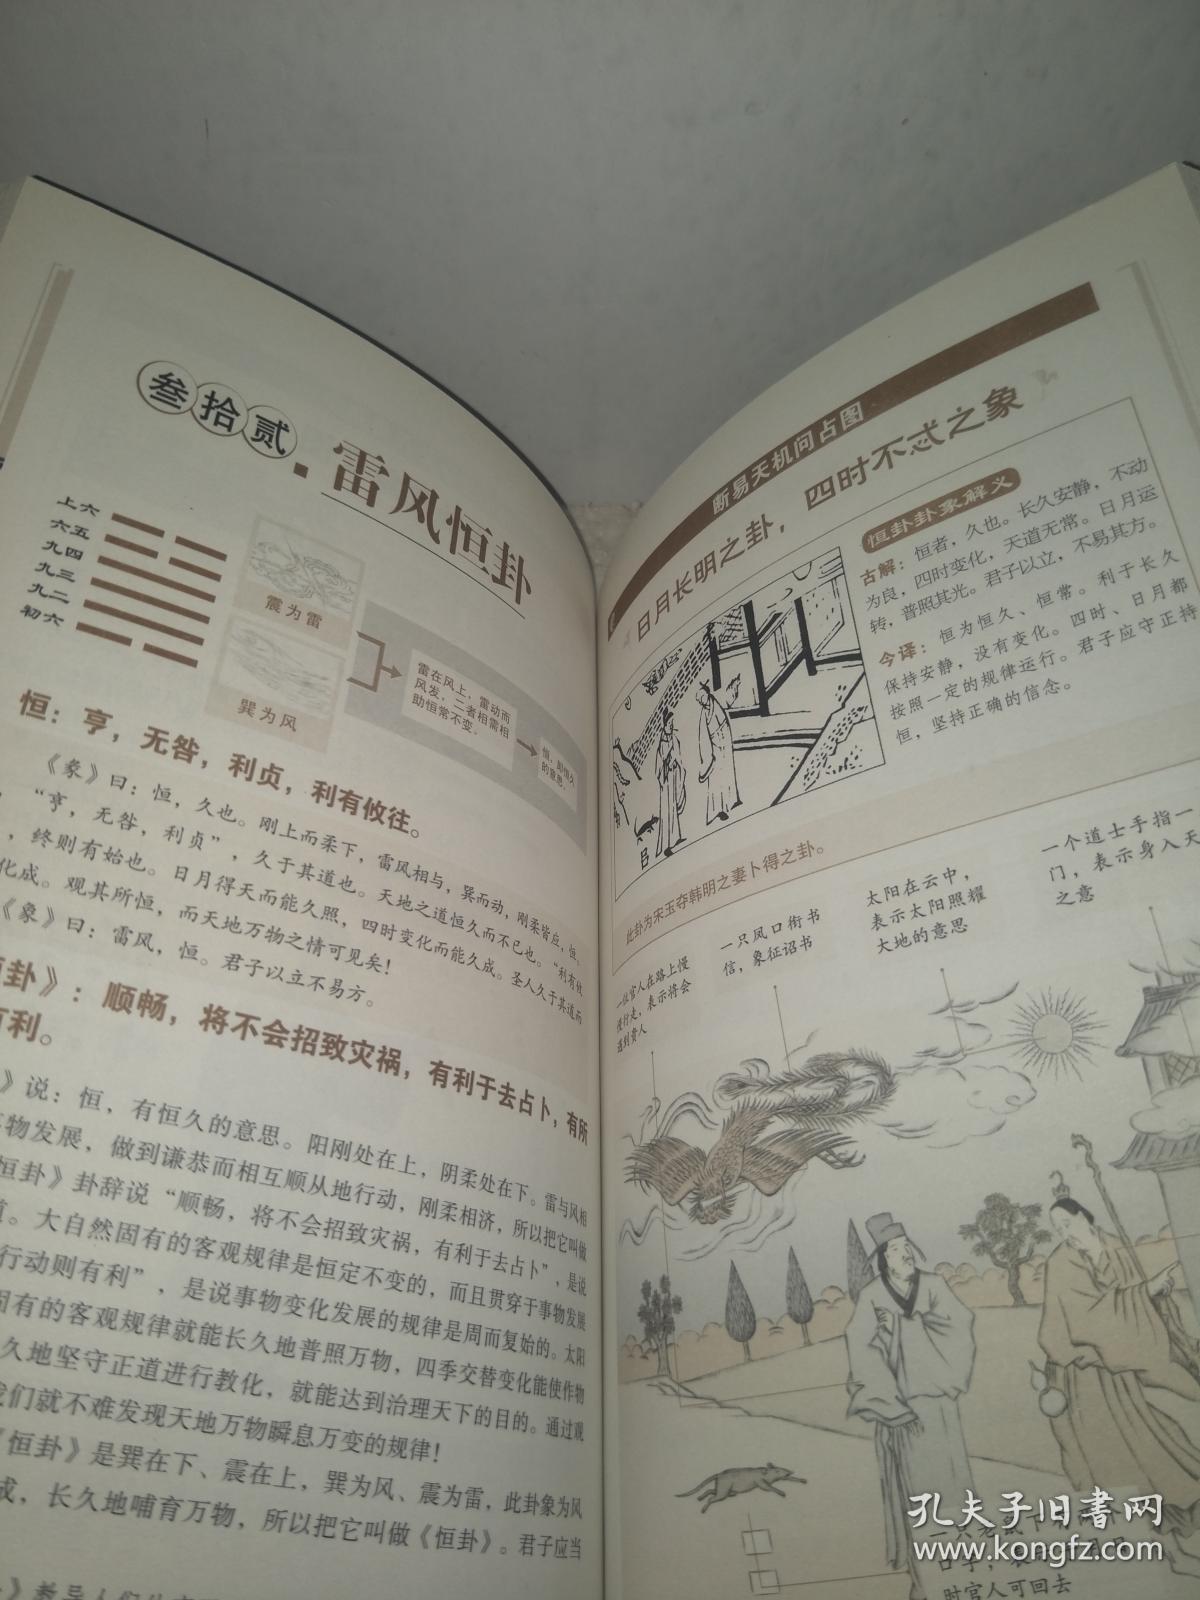 叁拾贰·雷风恒卦
上六
六五
九四
九三
九二
初六
震为雷
巽为风
雷在风上，雷动而
风发，二者相需相
助恒常不变。
恒，即恒久
的意思。
恒：亨，无咎，利贞，利有攸往。
《彖》曰：恒，久也。刚上而柔下，雷风相与，巽而动，刚柔皆应，恒。
“亨，无咎，利贞”，久于其道也。天地之道恒久而不已也。“利有攸
，终则有始也。日月得天而能久照，四时变化而能久成。圣人久于其道而
化成。观其所恒，而天地万物之情可见矣！
《象》曰：雷风，恒。君子以立不易方。
恒卦》：顺畅，将不会招致灾祸，有利于去占卜，有所
有利。
》说：恒，有恒久的意思。阳刚处在上，阴柔处在下。雷与风相
物发展，做到谦恭而相互顺从地行动，刚柔相济，所以把它叫做
恒卦》卦辞说“顺畅，将不会招致灾祸，有利于去占卜”，是说
。大自然固有的客观规律是恒定不变的，而且贯穿于事物发展
行动则有利”，是说事物变化发展的规律是周而复始的。太阳
固有的客观规律就能长久地普照万物，四季交替变化能使作物
久地坚守正道进行教化，就能达到治理天下的目的。通过观
我们就不难发现天地万物瞬息万变的规律！
《恒卦》是巽在下、震在上，巽为风、震为雷，此卦象为风
成，长久地哺育万物，所以把它叫做《恒卦》。君子应当
断易天机问占图
日月长明之卦，四时不忒之象
恒卦卦象解义
古解：恒者，久也。长久安静，不动
为良，四时变化，天道无常。日月运
转，普照其光。君子以立，不易其方。
今译：恒为恒久、恒常。利于长久
保持安静，没有变化。四时、日月都
按照一定的规律运行。君子应守正持
恒，坚持正确的信念。
此卦为宋玉夺韩明之妻卜得之卦。
一位官人在路上慢
慢行走，表示将会
遇到贵人
一只凤口衔书
信，象征诏书
太阳在云中，
表示太阳照耀
大地的意思
一个道士手指一
门，表示身入天
之意
时官人可回去
孔夫子旧书网
www.kongfz.com